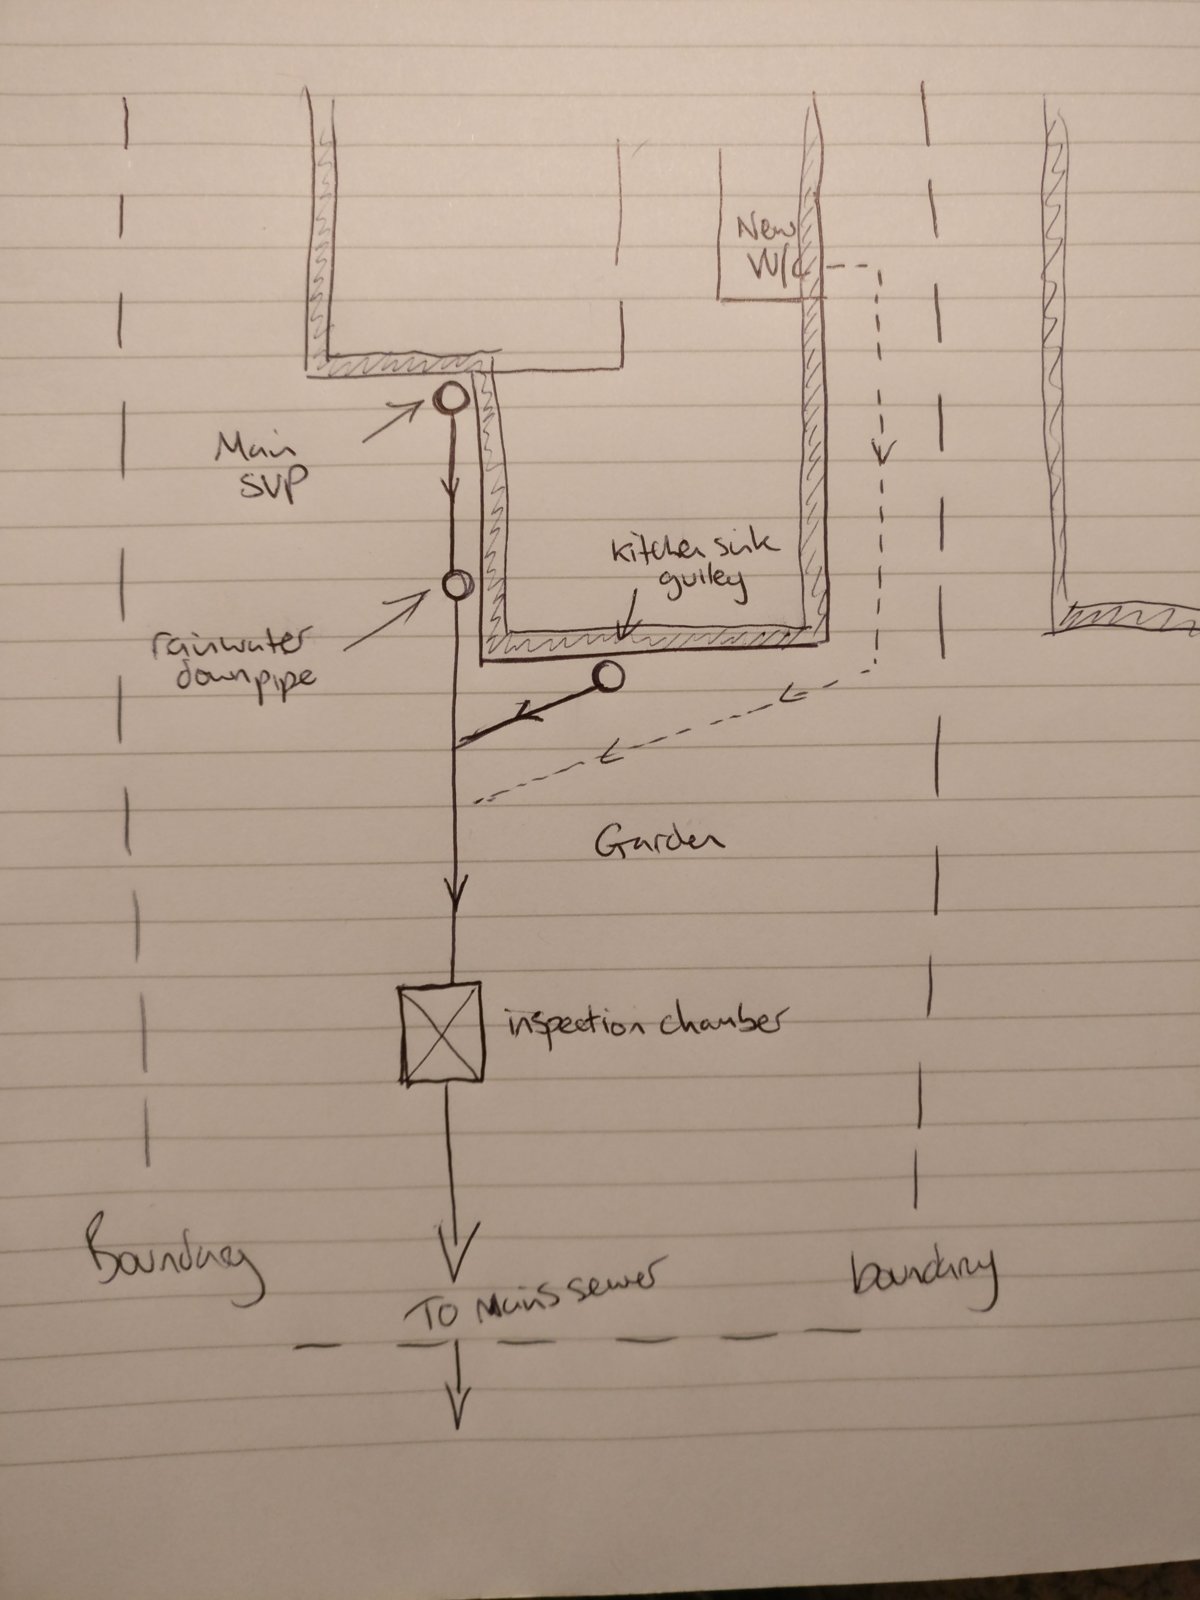 New
W/c
Main
SVP
kitchen sink
gulley
rainwater
downpipe
Garden
inspection chamber
Boundary
boundary
To Mains sewer